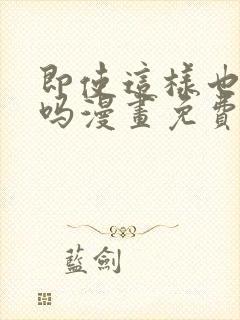 即使這樣也
吗漫畫免費
藍劍